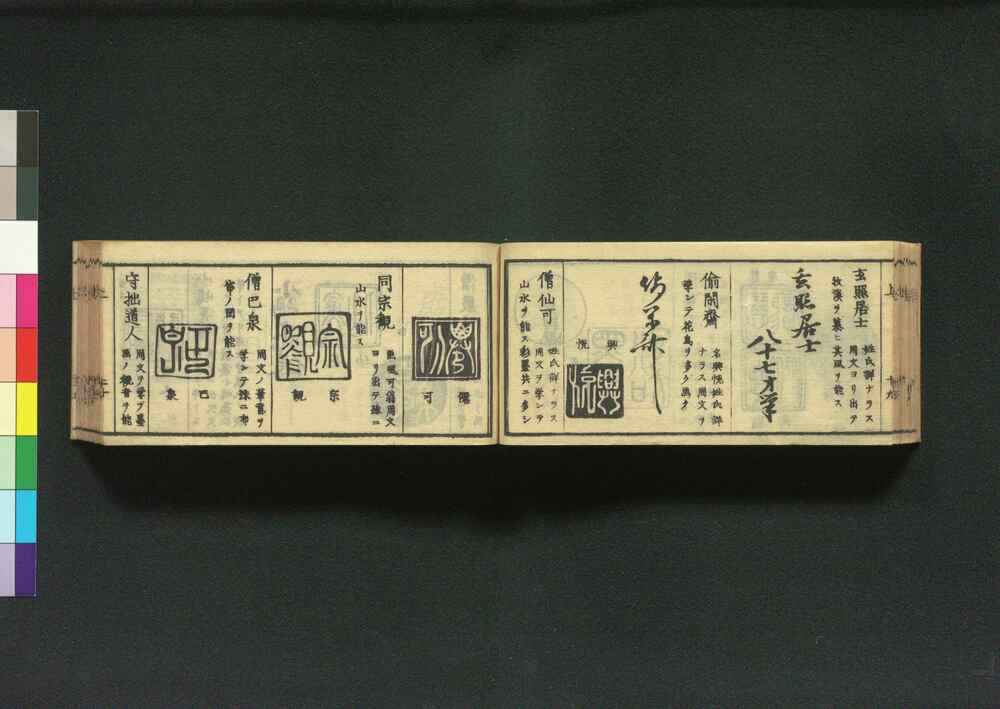 玄照居士
姓氏詳ナラス
周文ヨリ出テ
牧溪ヲ慕ヒ其風ヲ能ス
玄照居士
八十七才筆
偷閑齋
名興悦姓氏詳
ナラス周文ヲ
學ンテ花鳥ヲ多ク画ク
興
悦
興悦
僧仙可
姓氏詳ナラス
周文ヲ學ンテ
山水ヲ能ス彩墨共ニ多シ
僊
可
同宗觀
ヨリ出テ殊ニ
山水ヲ能ス
宗觀
宗
觀
僧巴泉
周文ノ筆意ヲ
學ンテ殊ニ布
袋ノ圖ヲ能ス
巴泉
巴
泉
守拙道人
周文ヲ學ヲ墨
画ノ観音ヲ能